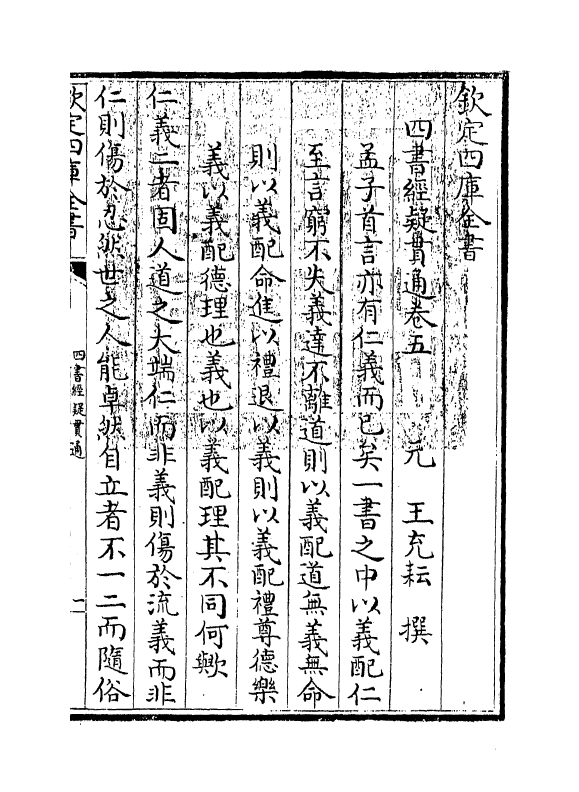 欽定四庫全書
四書經疑貫通卷五
元 王充耘 撰
孟子首言亦有仁義而已矣一書之中以義配仁
至言窮不失義達不離道則以義配道無義無命
則以義配命進以禮退以義則以義配禮尊德樂
義以義配德理也義也以義配理其不同何歟
仁義二者固人道之大端仁而非義則傷於流義而非
仁則傷於忍然世之人能卓然自立者不一二而隨俗
欽定四庫全書
四書經疑貫通
一